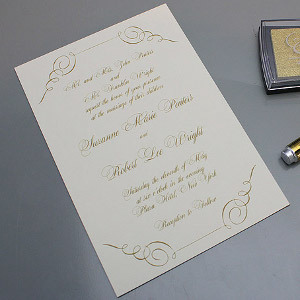 Mr. and Mrs. John Peters
and
Mrs. Franklin Wright
request the honor of your presence
at the marriage of their children
Suzanne Peters
and
Robert Lee Wright
Saturday the eleventh of May
at six o'clock in the evening
Hotel, New York
Reception to Follow